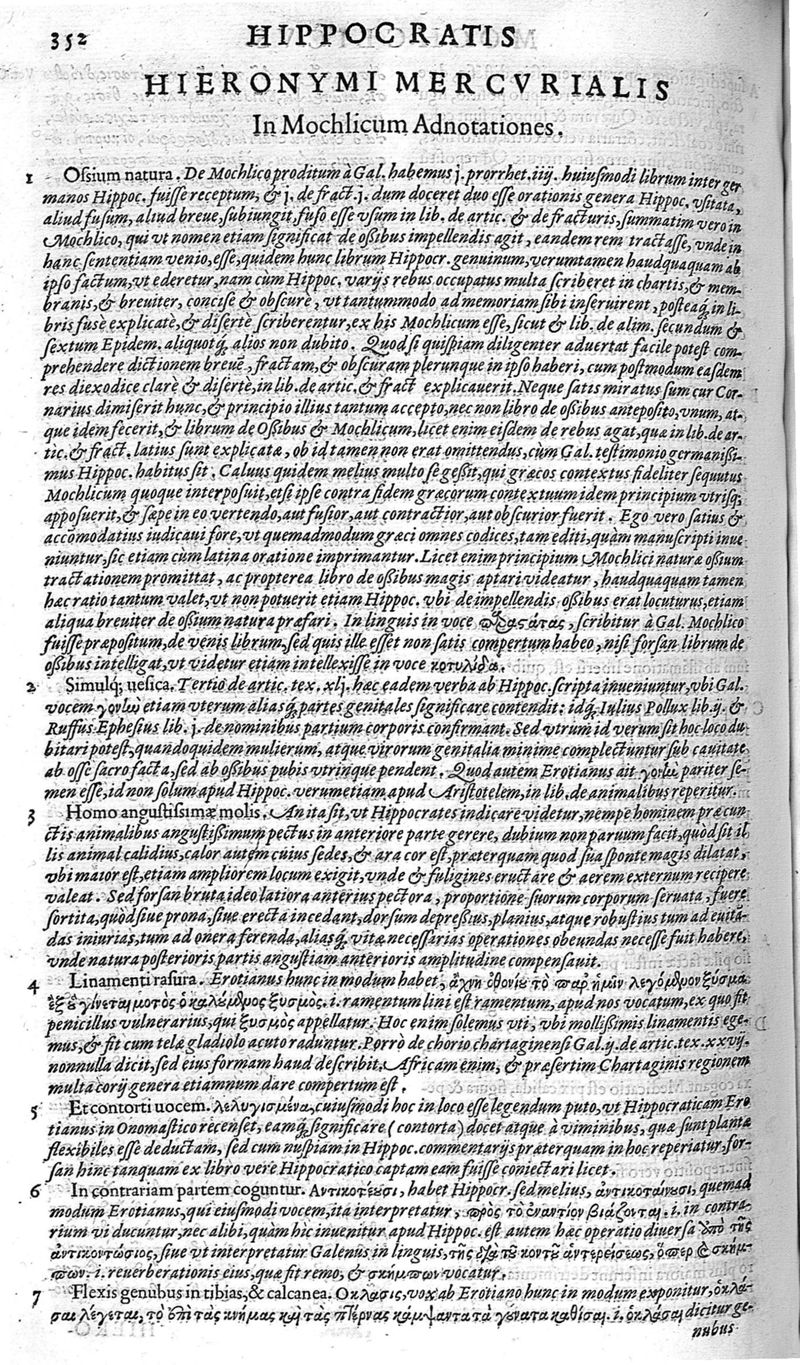 352 HIPPOCRATIS
HIERONYMI MERCVRIALIS
In Mochlicum Adnotationes.
1 Ossium natura. De Mochlico proditum à Gal. habemus j. prorrhet. iiij. huiusmodi librum inter ger
manos Hippoc. fuisse receptum, & j. de fract. j. dum doceret duo esse orationis genera Hippoc. vsitata,
aliud fusum, aliud breue, subiungit, fuso esse vsum in lib. de artic. & de fracturis, summatim vero in
Mochlico, qui vt nomen etiam significat de ossibus impellendis agit, eandem rem tractasse, vnde in
hanc sententiam venio, esse, quidem hunc librum Hippocr. genuinum, verumtamen haudquaquam ab
ipso factum, vt ederetur, nam cùm Hippoc. varijs rebus occupatus multa scriberet in chartis, & mem-
branis, & breuiter, concisè & obscurè, vt tantummodo ad memoriam sibi inseruirent, posteaq́; in li-
bris fusè explicatè, & disertè scriberentur, ex his Mochlicum esse, sicut & lib. de alim. secundum &
sextum Epidem. aliquotq́; alios non dubito. Quod si quispiam diligenter aduertat facile potest com-
prehendere dictionem breuē, fractam, & obscuram plerunque in ipso haberi, cum postmodum easdem
res diexodice clarè & disertè, in lib. de artic. & fract explicauerit. Neque satis miratus sum cur Cor-
narius dimiserit hunc, & principio illius tantum accepto, nec non libro de ossibus anteposito, vnum, at-
que idem fecerit, & librum de Ossibus & Mochlicum, licet enim eisdem de rebus agat, quæ in lib. de ar-
tic. & fract. latius sunt explicatæ, ob id tamen non erat omittendus, cùm Gal. testimonio germanissi-
mus Hippoc. habitus sit. Caluus quidem melius multo se gessit, qui græcos contextus fideliter sequutus
Mochlicum quoque interposuit, etsi ipse contra fidem græcorum contextuum idem principium vtrisq;
apposuerit, & sæpe in eo vertendo, aut fusior, aut contractior, aut obscurior fuerit. Ego vero satius &
accomodatius iudicaui fore, vt quemadmodum græci omnes codices, tam editi, quàm manuscripti inue
niuntur, sic etiam cùm latina oratione imprimantur. Licet enim principium Mochlici naturæ ossium
tractationem promittat, ac propterea libro de ossibus magis aptari videatur, haudquaquam tamen
hæc ratio tantum valet, vt non potuerit etiam Hippoc. vbi de impellendis ossibus erat locuturus, etiam
aliqua breuiter de ossium natura præfari. In linguis in voce scribitur à Gal. Mochlico
fuisse præpositum, de venis librum, sed quis ille esset non satis compertum habeo, nisi forsan librum de
ossibus intelligat, vt videtur etiam intellexisse in voce κοτυλίδα.
2 Simulq; uesica. Tertio de artic. tex. xlj. hæc eadem verba ab Hippoc. scripta inueniuntur, vbi Gal.
vocem γονὼ etiam vterum aliasq́; partes genitales significare contendit: idq́; Iulius Pollux lib. ij. &
Ruffus Ephesius lib. j. de nominibus partium corporis confirmant. Sed vtrum id verum sit hoc loco du
bitari potest, quandoquidem mulierum, atque virorum genitalia minime complectuntur sub cauitate
ab osse sacro facta, sed ab ossibus pubis vtrinque pendent. Quod autem Erotianus ait γονὼ pariter se-
men esse, id non solum apud Hippoc. verumetiam apud Aristotelem, in lib. de animalibus reperitur.
3 Homo angustissimæ molis. An ita sit, vt Hippocrates indicare videtur, nempe hominem præ cun-
ctis animalibus angustissimum pectus in anteriore parte gerere, dubium non paruum facit, quòd sit il
lis animal calidius, calor autem cuius sedes, & ara cor est, præterquam quod sua sponte magis dilatat,
vbi maior est, etiam ampliorem locum exigit, vnde & fuligines eructare & aerem externum recipere
valeat. Sed forsan bruta ideo latiora anterius pectora, proportione suorum corporum seruata, fuere
sortita, quòd siue prona, siue erecta incedant, dorsum depressius, planius, atque robustius tum ad euitā-
das iniurias, tum ad onera ferenda, aliasq́; vitæ necessarias operationes obeundas necesse fuit habere,
vnde natura posterioris partis angustiam anterioris amplitudine compensauit.
4 Linamenti rasura. Erotianus hunc in modum habet, ἄχνη ὀθονίου τὸ παρ' ἡμῖν λεγόμενον ξύσμα
ἐξ οὗ γίνεται μοτὸς ὁ καλούμενος ξυσμός. i. ramentum lini est ramentum, apud nos vocatum, ex quo fit
penicillus vulnerarius, qui ξυσμὸς appellatur. Hoc enim solemus vti, vbi mollissimis linamentis ege-
mus, & fit cum telæ gladiolo acuto raduntur. Porrò de chorio chartaginensi Gal. ij. de artic. tex. xxvij.
nonnulla dicit, sed eius formam haud describit. Africam enim, & præsertim Chartaginis regionem
multa corij genera etiamnum dare compertum est.
5 Et contorti uocem. λελυγισμένα, cuiusmodi hoc in loco esse legendum puto, vt Hippocraticam Ero
tianus in Onomastico recenset, eamq́; significare (contorta) docet atque à viminibus, quæ sunt plantæ
flexibiles esse deductam, sed cum nuspiam in Hippoc. commentarijs præterquam in hoc reperiatur, for-
san hinc tanquam ex libro vere Hippocratico captam eam fuisse coniectari licet.
6 In contrariam partem coguntur. Αντικοτέουσι, habet Hippocr. sed melius, ἀντικοταίνουσι, quemad
modum Erotianus, qui eiusmodi vocem, ita interpretatur, πρὸς τὸ ἐναντίον βιάζονται. i. in contra-
rium vi ducuntur, nec alibi, quàm hic inuenitur apud Hippoc. est autem hæc operatio diuersa ὑπὸ τῆς
ἀντικοντώσιος, siue vt interpretatur Galenus in linguis, τῆς διὰ τοῦ κοντοῦ ἀντερείσεως, ὅπερ ἐστὶ σκήμ-
πων. i. reuerberationis eius, quæ fit remo, & σκήμπων vocatur.
7 Flexis genubus in tibias, & calcanea. Οκλασις, vox ab Erotiano hunc in modum exponitur, ὀκλά-
σαι λέγεται, τὸ ἐπὶ τὰς κνήμας καὶ τὰς πτέρνας κάμψαντα τὰ γόνατα καθίσαι. i. ὀκλάσαι dicitur ge-
nubus